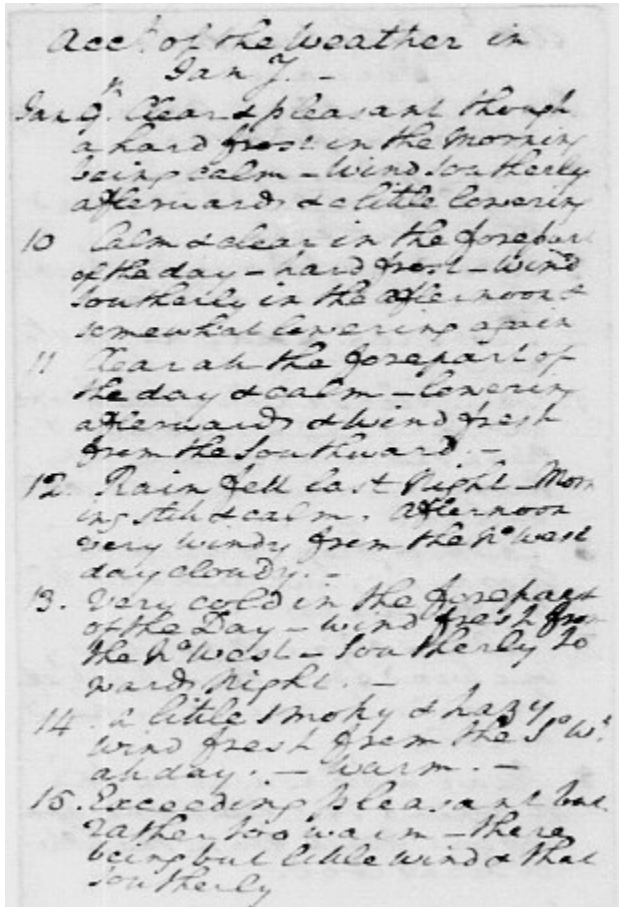 Acct. of the Weather in
Jany.—
Jan 9th. Clear & pleasant though
a hard frost in the Morning
being calm — Wind Southerly
afterwards & a little lowering
10 Calm & clear in the forepart
of the day — hard frost — Wind
Southerly in the afternoon &
somewhat lowering again
11 Clear all the forepart of
the day & calm — lowering
afterwards & Wind fresh
from the Southward.—
12. Rain fell last Night — Morn
ing still & calm. Afternoon
very windy from the No. West
day cloudy.—
13. Very cold in the forepart
of the Day — Wind fresh from
the No. West — Southerly to
wards Night.—
14. A little smoky & hazy
wind fresh from the So. Wt.
all day.— Warm.—
15. Exceeding pleasant but
rather too warm — there
being but little wind & that
Southerly